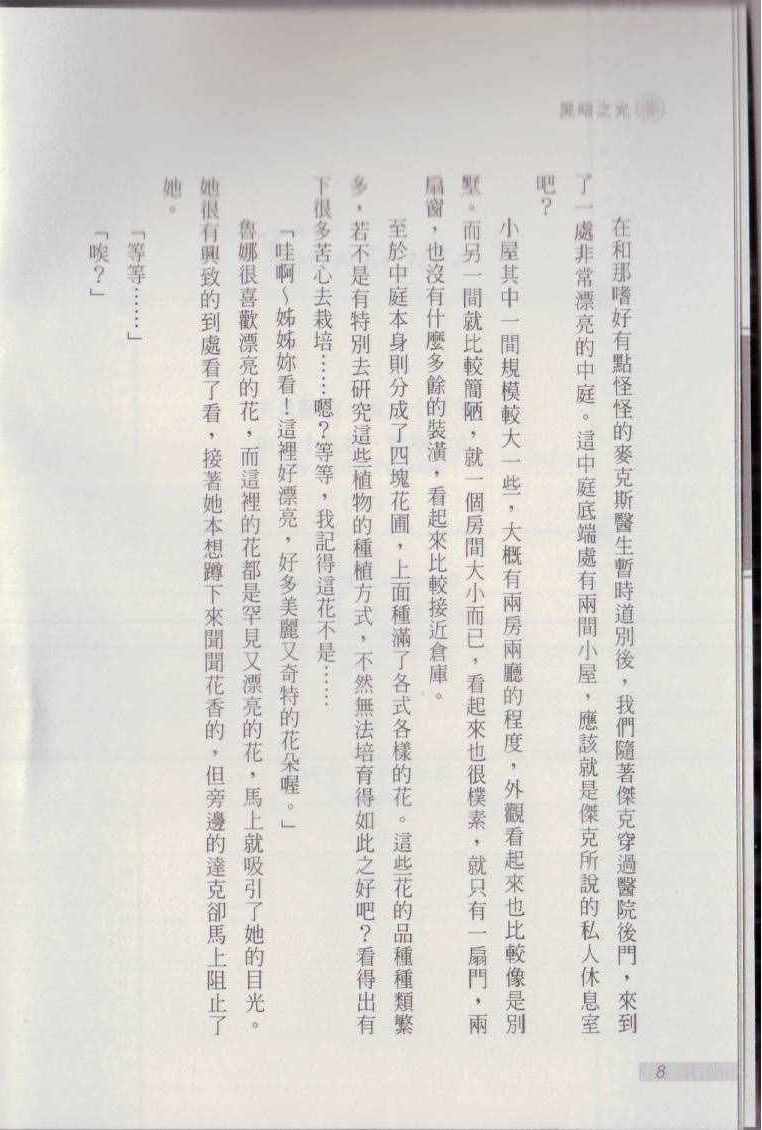 黑暗之光
在和那嗜好有點怪怪的麥克斯醫生暫時道別後，我們隨著傑克穿過醫院後門，來到
了一處非常漂亮的中庭。這中庭底端處有兩間小屋，應該就是傑克所說的私人休息室
吧？
小屋其中一間規模較大一些，大概有兩房兩廳的程度，外觀看起來也比較像是別
墅。而另一間就比較簡陋，就一個房間大小而已，看起來也很樸素，就只有一扇門，兩
扇窗，也沒有什麼多餘的裝潢，看起來比較接近倉庫。
至於中庭本身則分成了四塊花圃，上面種滿了各式各樣的花。這些花的品種種類繁
多，若不是有特別去研究這些植物的種植方式，不然無法培育得如此之好吧？看得出有
下很多苦心去栽培……嗯？等等，我記得這花不是……
「哇啊～姊姊妳看！這裡好漂亮，好多美麗又奇特的花朵喔。」
魯娜很喜歡漂亮的花，而這裡的花都是罕見又漂亮的花，馬上就吸引了她的目光。
她很有興致的到處看了看，接著她本想蹲下來聞聞花香的，但旁邊的達克卻馬上阻止了
她。
「等等……」
「唉？」
8